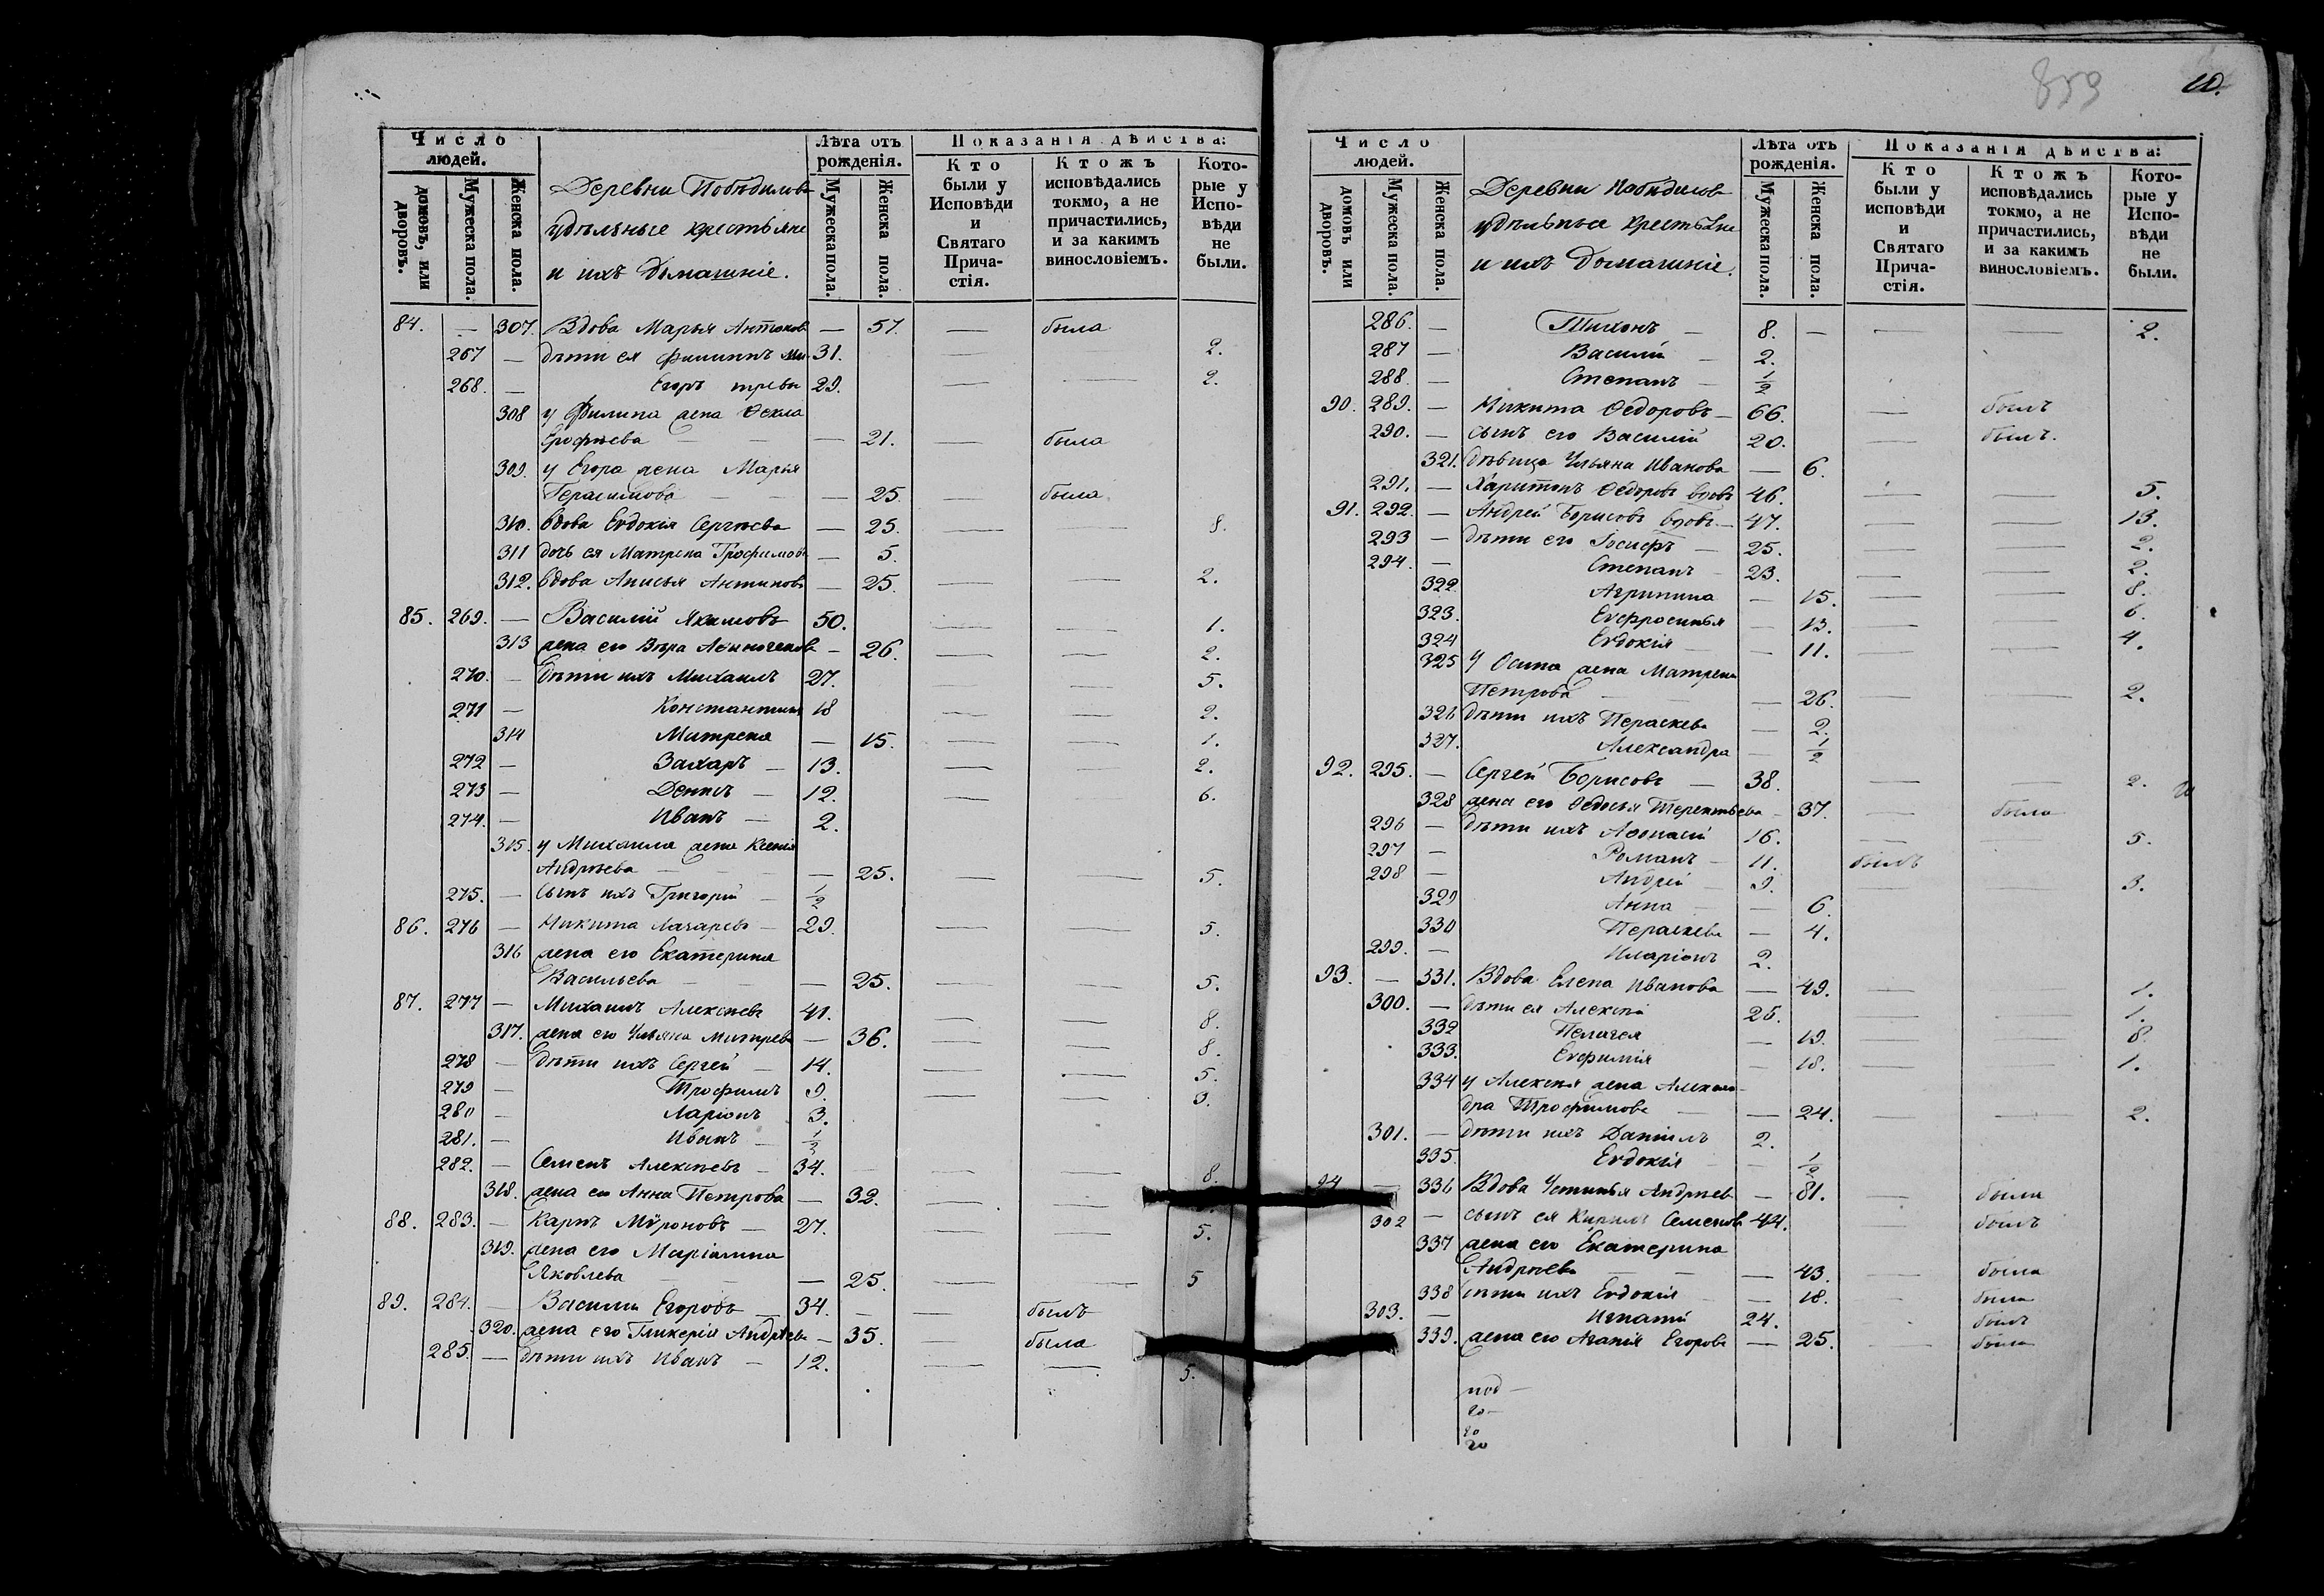 859 10.
Число людей. Лѣта отъ рожденія. Показанія дѣйства:
домовъ, или дворовъ. Мужеска пола. Женска пола. Мужеска пола. Женска пола. Кто были у Исповѣди и Святаго Причастія. Ктожъ исповѣдались токмо, а не причастились, и за какимъ винословіемъ. Которые у Исповѣди не были.
Деревни
удѣльные крестьяне
и ихъ домашніе.
84. — 307. Вдова Марья Антонов — 57. — была
267 — дѣти ея Филиппъ 31. — — 2.
268. — Егоръ 29. — — 2.
308 у Филипа жена Фекла
Ерофѣева — — — 21. — была
309. у Егора жена Марья
Герасимова — — — 25. — была
310. вдова Евдокія Сергѣева — 25. — — 8.
311 дочь ея Матрена — 5.
312. вдова Анисья Антипов — 25. — — 2.
85. 269. — Василій Якимовъ 50. — — 1.
313 жена его Вѣра — 26. — — 2.
270. — дѣти ихъ Михаилъ 27. — — 5.
271 — Константинъ 18 — — 2.
314 Матрена — 15. — — 1.
272 — Захаръ — 13. — — 2.
273 — Денисъ — 12. — — 6.
274. — Иванъ — 2.
315. у Михаила жена Ксенія
Андрѣева — — 25. — — 5.
275. — сынъ ихъ Григорій — 1/2
86. 276 — Никита Лазаревъ — 29. — — 5.
316 жена его Екатерина
Васильева — — 25. — — 5.
87. 277 — Михаилъ Алексѣевъ 41. — — 8.
317. жена его Ульяна — 36. — — 8.
278 — дѣти ихъ Сергей — 14. — — 5.
279 — Трофимъ 9. — — 3.
280 — Ларіонъ 3.
281. — Иванъ — 1/2
282. — Семенъ Алексѣевъ — 34. — — 8.
318. жена его Анна Петрова — 32. — —
88. 283. — Карпъ Мѵроновъ — 27. — — 5.
319. жена его Маріамна
Яковлева — — — 25. — — 5
89. 284. — Василій Егоровъ — 34. — — былъ
320. жена его Гликерія Андрѣева — 35. — была
285. — дѣти ихъ Иванъ — 12. — — 5.
Число людей. Лѣта отъ рожденія. Показанія дѣйства:
домовъ или дворовъ. Мужеска пола. Женска пола. Мужеска пола. Женска пола. Кто были у исповѣди и Святаго Причастія. Ктожъ исповѣдались токмо, а не причастились, и за какимъ винословіемъ. Которые у Исповѣди не были.
Деревни
удѣльные крестьяне
и ихъ домашніе.
286. — Тихонъ — 8. — — — 2.
287 — Василій — 2.
288. — Степанъ — 1/2
90. 289. — Никита Федоровъ — 66. — былъ
290. — сынъ его Василій 20. — былъ.
321. дѣвица Ульяна Иванова — 6.
291. — Харитонъ Федоровъ вдовъ 46. — — 5.
91. 292. — Андрей Борисовъ вдовъ — 47. — — 13.
293 — дѣти его Іосифъ — 25. — — 2.
294. — Степанъ 23. — — 2.
322. Агрипина — 15. — — 8.
323. Евфросинья — 13. — — 6.
324 Евдокія — — 11. — — 4.
325 у Осипа жена Матрена
Петрова — — 26. — — 2.
326 дѣти ихъ Параскева — 2.
327. Александра — 1/2
92. 295. — Сергей Борисовъ — 38. — — 2.
328 жена его Федосья Терентьева — 37. — была
296 — дѣти ихъ Афонасій 16. — — 5.
297 — Романъ — 11. былъ
298 — Андрей — 9. — 3.
329 Анна — — 6.
330 Параскева — 4.
299. — Иларіонъ 2.
93. — 331. Вдова Елена Иванова — 49. — — 1.
300. — дѣти ея Алексѣй 25. — — 1.
332 Пелагея — 19. — — 8.
333. Евфимія — 18. — — 1.
334 у Алексѣя жена Алексан-
дра Трофимова — — 24. — — 2.
301. — дѣти ихъ Даніилъ 2.
335. Евдокія — — 1/2
94 — 336 Вдова Устинья Андрѣев — 81. — была
302 — сынъ ея Кирилъ Семеновъ 44. — былъ
337 жена его Екатерина
Андрѣева — — — 43. — была
338 дѣти ихъ Евдокія — — 18. — была
303. — Игнатій 24. былъ
339. жена его Агапія Егорова — 25. — была